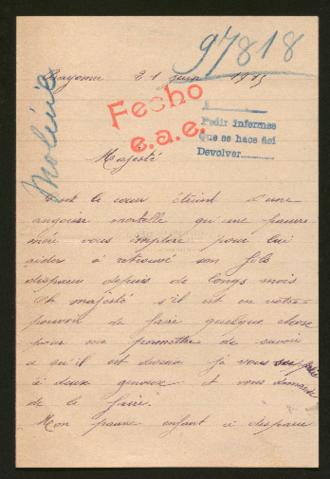 97818
Molinié
Bayonne 21 juin 1915
Fecho
e.a.e.
Pedir informes
Que se hace así
Devolver
Majesté
C'est le cœur étreint d'une
angoisse mortelle qu'une pauvre
mère vous implore pour lui
aider à retrouvé son fils
disparu depuis de longs mois
Oh majesté s'il est en votre
pouvoir de faire quelque chose
pour me permettre de savoir
ce qu'il est devenu je vous supplie
à deux genoux et vous demande
de le faire.
Mon pauvre enfant a disparu